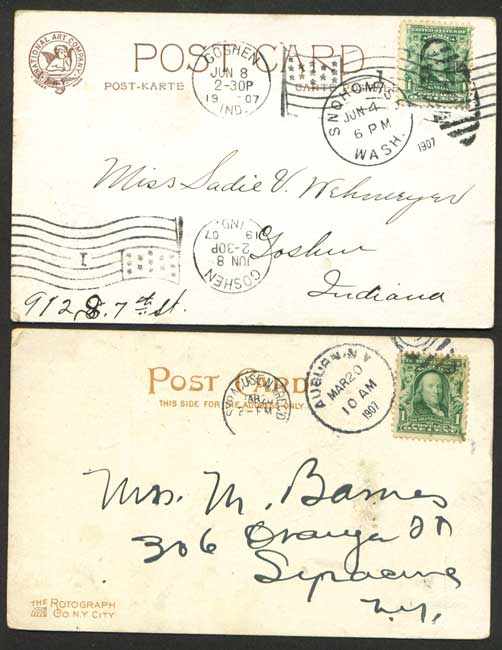 POST CARD
POST-KARTE
INTERNATIONAL ART COMPANY
N.Y.
GOSHEN
JUN 8
2-30P
19 07
IND.
1
SNOHOMISH
JUN 4
6 PM
WASH.
1907
Miss Sadie V. Wehmeyer
Goshen
Indiana
1
GOSHEN
JUN 8
2-30P
19 07
IND.
912 S. 7th St.
POST CARD
THIS SIDE FOR THE ADDRESS ONLY
SYRACUSE, N.Y. REC'D
MAR 20
AUBURN, N.Y.
MAR 20
10 AM
1907
1 1
ONE CENT
Mrs. M. Barnes
306 Orange St
Syracuse
N.Y.
THE ROTOGRAPH
CO. N.Y. CITY